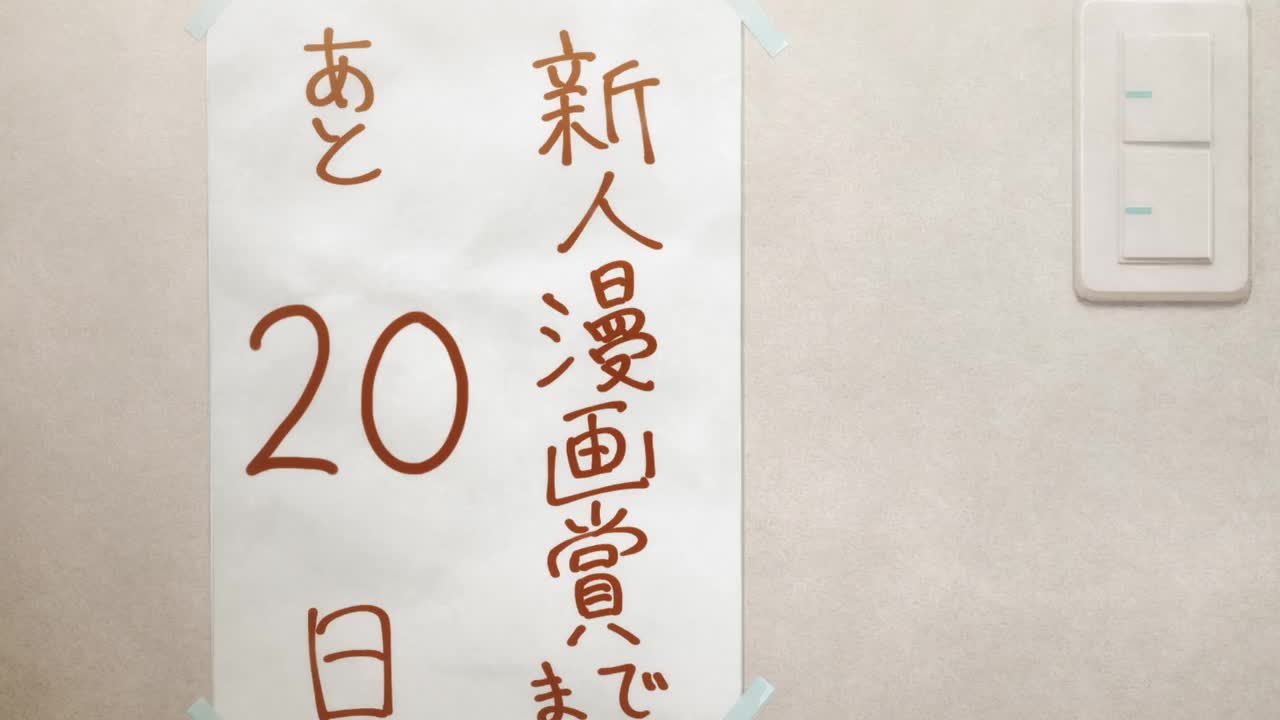 新人漫画賞まで
あと20日